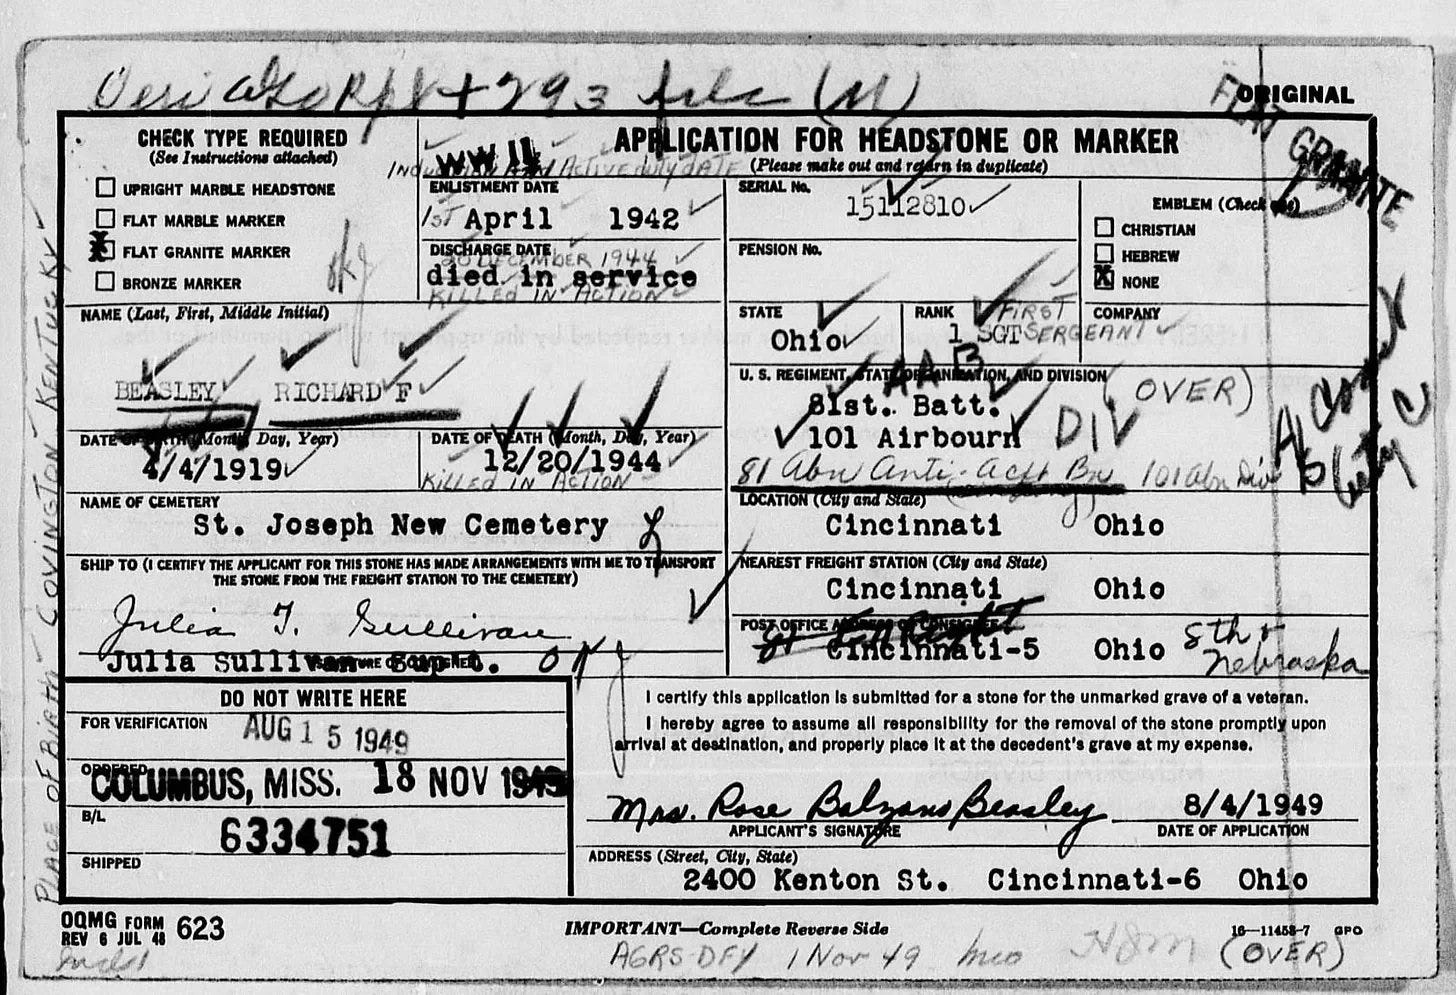 293 file (M)
ORIGINAL
FLAT GRANITE
CHECK TYPE REQUIRED
(See Instructions attached)
UPRIGHT MARBLE HEADSTONE
FLAT MARBLE MARKER
X FLAT GRANITE MARKER
BRONZE MARKER
OK
WW II
APPLICATION FOR HEADSTONE OR MARKER
(Please make out and return in duplicate)
INDUCTION AND ACTIVE DUTY DATE
ENLISTMENT DATE
1ST April 1942
DISCHARGE DATE
20 DECEMBER 1944
died in service
KILLED IN ACTION
SERIAL No.
15112810
PENSION No.
EMBLEM (Check one)
CHRISTIAN
HEBREW
X NONE
NAME (Last, First, Middle Initial)
BEASLEY RICHARD F
STATE
Ohio
RANK
1 SGT
FIRST
SERGEANT
COMPANY
U. S. REGIMENT, STATE ORGANIZATION, AND DIVISION
AAB
81st. Batt.
101 Airbourn DIV
(OVER)
81 Abn Anti-Acft Bn 101 Abn Div
DATE OF BIRTH (Month, Day, Year)
4/4/1919
DATE OF DEATH (Month, Day, Year)
12/20/1944
KILLED IN ACTION
NAME OF CEMETERY
St. Joseph New Cemetery
LOCATION (City and State)
Cincinnati Ohio
SHIP TO (I CERTIFY THE APPLICANT FOR THIS STONE HAS MADE ARRANGEMENTS WITH ME TO TRANSPORT
THE STONE FROM THE FREIGHT STATION TO THE CEMETERY)
Julia T. Sullivan
Julia Sullivan Supt.
SIGNATURE OF CONSIGNEE
OK
NEAREST FREIGHT STATION (City and State)
Cincinnati Ohio
POST OFFICE ADDRESS OF CONSIGNEE
Cincinnati-5 Ohio
8th &
Nebraska
PLACE OF BIRTH - COVINGTON KENTUCKY
DO NOT WRITE HERE
FOR VERIFICATION
AUG 15 1949
ORDERED
COLUMBUS, MISS. 18 NOV 1949
B/L
6334751
SHIPPED
I certify this application is submitted for a stone for the unmarked grave of a veteran.
I hereby agree to assume all responsibility for the removal of the stone promptly upon
arrival at destination, and properly place it at the decedent's grave at my expense.
Mrs. Rose Balzano Beasley 8/4/1949
APPLICANT'S SIGNATURE
DATE OF APPLICATION
ADDRESS (Street, City, State)
2400 Kenton St. Cincinnati-6 Ohio
OQMG FORM 623
REV 6 JUL 48
IMPORTANT—Complete Reverse Side
16—11453-7 GPO
AGRS-DFY 1 Nov 49
(OVER)